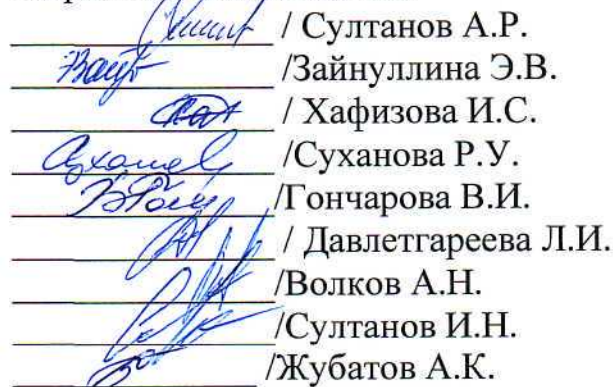 / Султанов А.Р.
/Зайнуллина Э.В.
/ Хафизова И.С.
/Суханова Р.У.
/Гончарова В.И.
/ Давлетгареева Л.И.
/Волков А.Н.
/Султанов И.Н.
/Жубатов А.К.